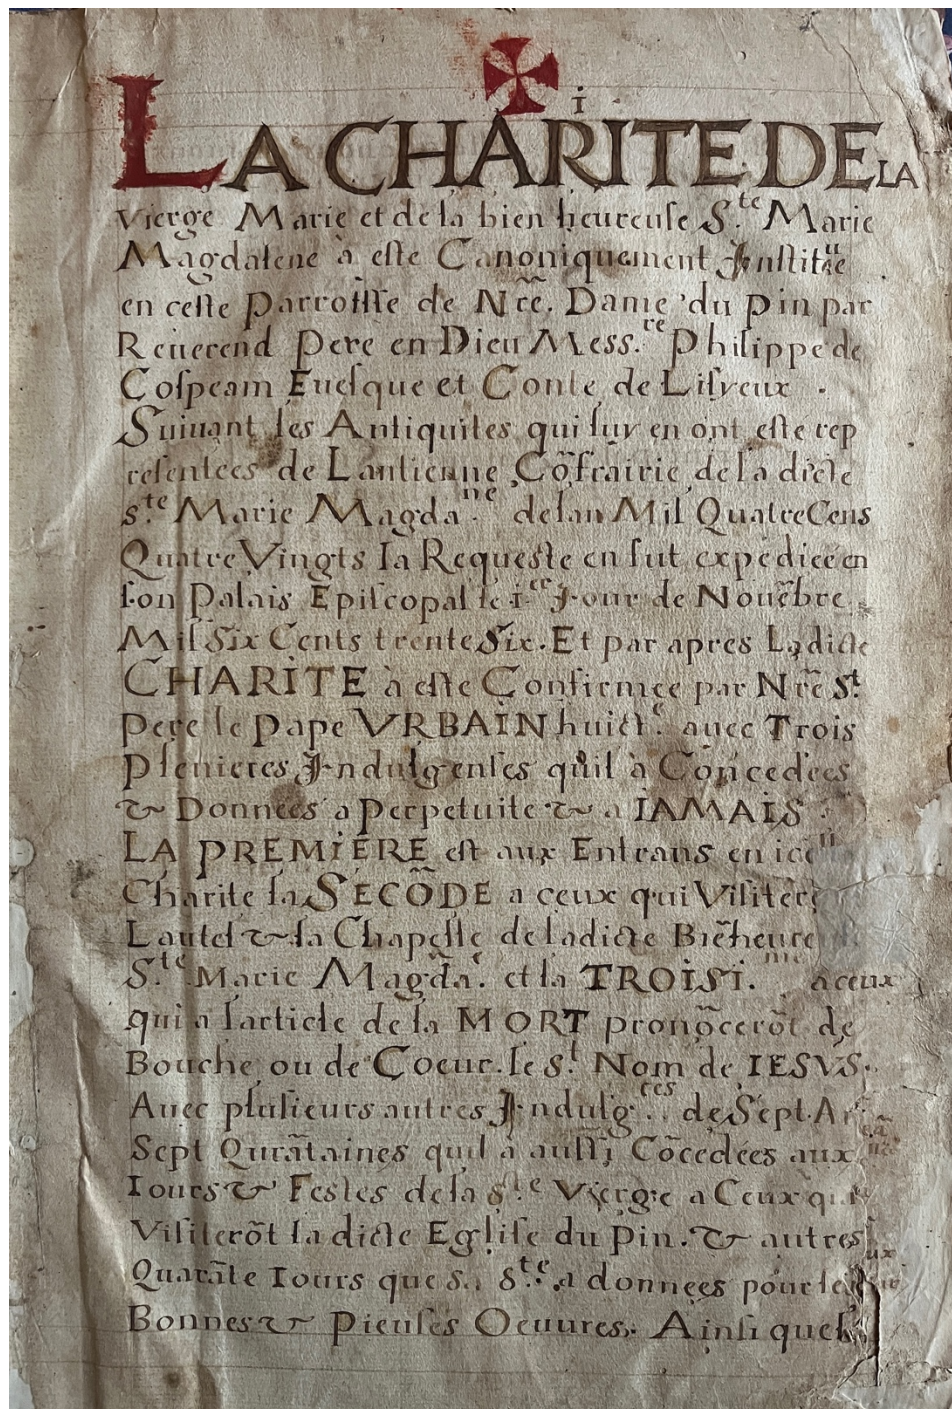 i
LA CHARITE DE LA
Vierge Marie et de la bien heureuse S.te Marie
Magdalene à este Canoniquement Jnstituée
en ceste Parroisse de Nr̃e. Dame du Pin par
Reuerend Pere en Dieu Mess.re Philippe de
Cospeam Euesque et Conte de Lisyeux .
Suiuant les Antiquites qui luy en ont este rep
resentées de Lantienne Cõfrairie de la dicte
S.te Marie Magda.ne de lan Mil Quatre Cens
Quatre Vingts la Requeste en fut expédiée en
son Palais Episcopal le i.er Jour de Nouẽbre
Mil Six Cents trente Six. Et par apres Ladicte
CHARITE à este Confirmee par Nr̃e St.
Pere le Pape VRBAIN huict.e auec Trois
Plenieres Jndulgenses quil à Concedées
& Données a Perpetuite & a IAMAIS
LA PREMIERE est aux Entrans en icelle
Charite la SECÕDE a ceux qui Visiter
Lautel & la Chapelle de ladicte Biẽheure
S.te Marie Magd̃a.e et la TROISI.me a ceux
qui a larticle de la MORT pronõcerõt de
Bouche ou de Coeur. le S.t Nom de IESVS.
Auec plusieurs autres Jndulg.ces de Sept. An
Sept Qurãtaines quil à aussi Cõcedées aux
Iours & Festes de la S.te Vierge a Ceux qui
Visiterõt la dicte Eglise du Pin. & autres
Quarãte Iours que sa S.te. a données pour les
Bonnes & Pieuses Oeuures. Ainsi que